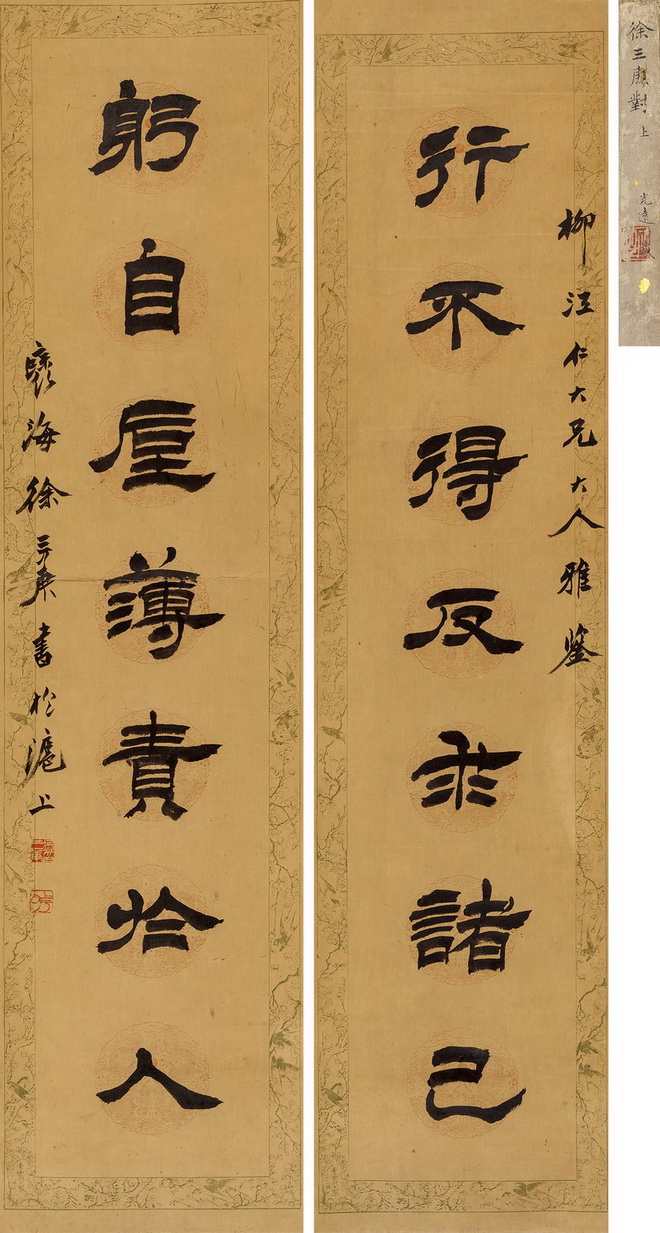 徐三庚對 上
光遠
柳汪仁大兄大人雅鑒
行不得反求諸己
躬自厚薄責於人
褱海徐三庚書於滬上